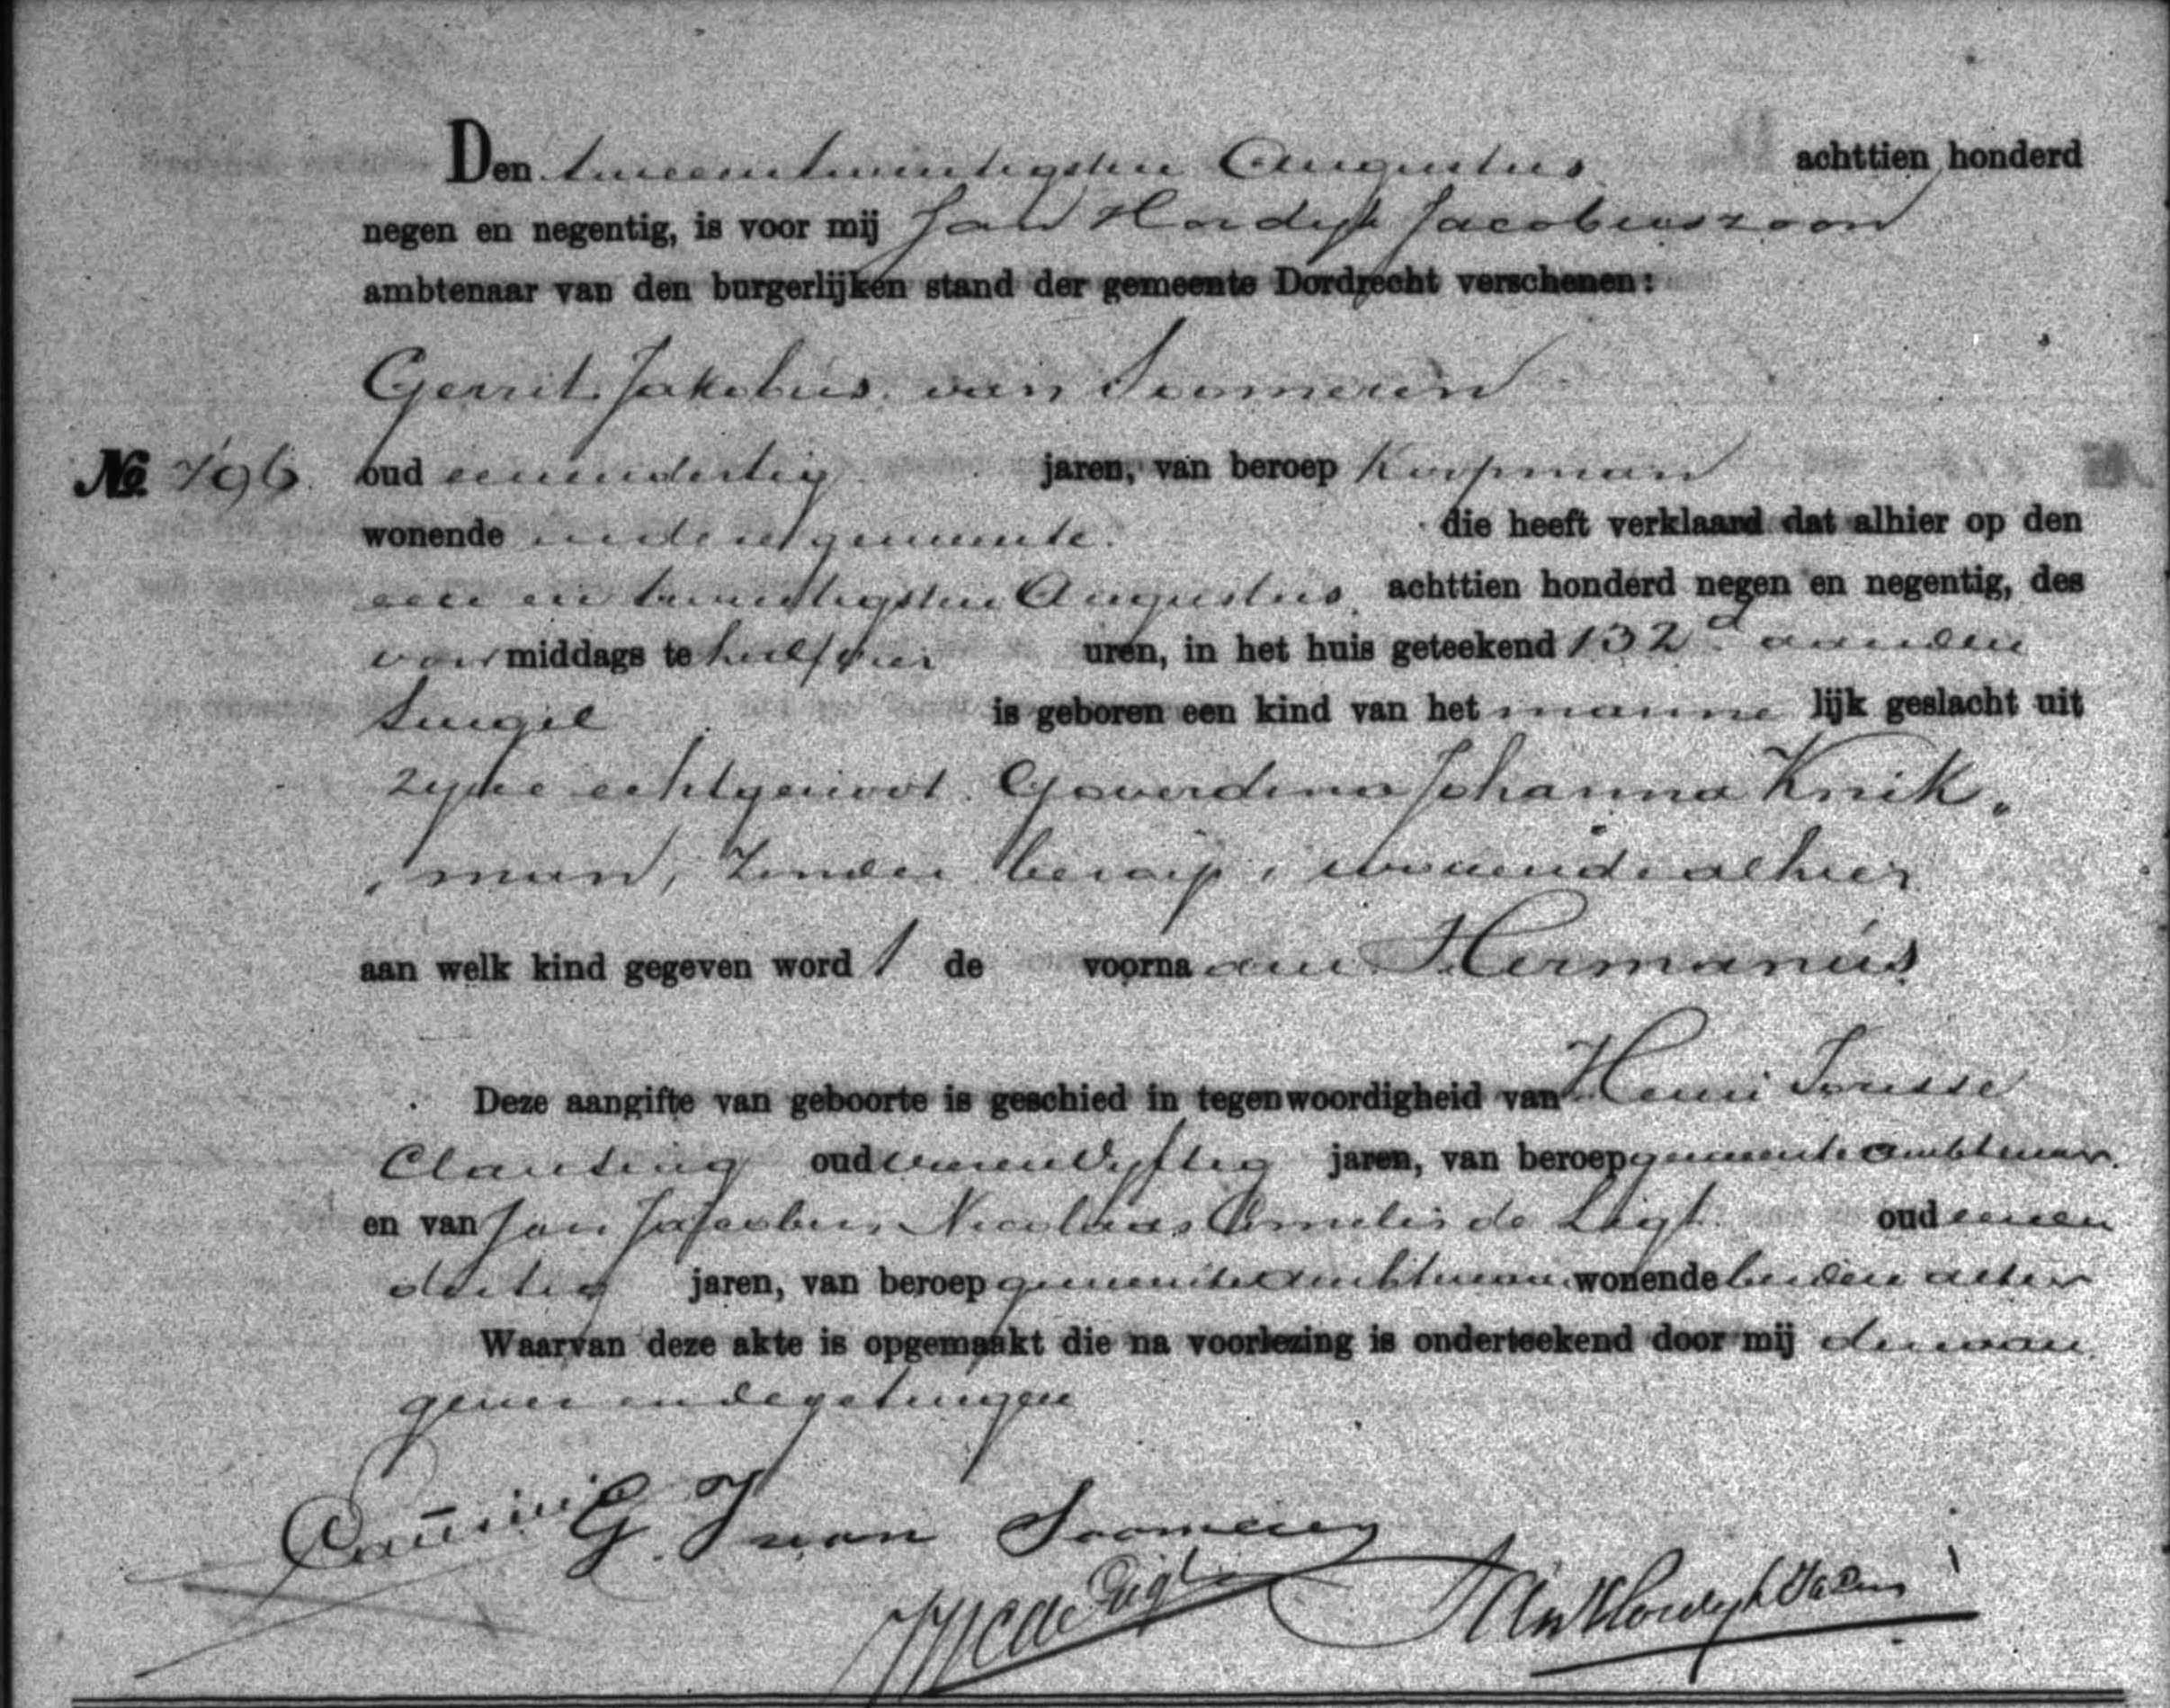 Den tweeentwintigsten Augustus achttien honderd
negen en negentig, is voor mij Jan Hordijk Jacobuszoon
ambtenaar van den burgerlijken stand der gemeente Dordrecht verschenen:
Gerrit Jakobus van Soomeren
No 796 oud eenendertig jaren, van beroep Koopman
wonende in deze gemeente. die heeft verklaard dat alhier op den
een en twintigsten Augustus achttien honderd negen en negentig, des
voor middags te half vier uren, in het huis geteekend 132d aan den
Singel is geboren een kind van het manne lijk geslacht uit
zyne echtgenoot Goverdina Johanna Knik„
„man, zonder beroep, wonende alhier
aan welk kind gegeven word t de voorna am Hermanus
Deze aangifte van geboorte is geschied in tegenwoordigheid van Henri
Clausing oud vierenvyftig jaren, van beroep gemeente ambtenaar
en van Jan Jacobus Nicolaas Cornelis de Ligt oud eenen
dertig jaren, van beroep gemeente ambtenaar wonende beiden alhier
Waarvan deze akte is opgemaakt die na voorlezing is onderteekend door mij den aan
gever en de getuigen
G J van Soomeren
JJNC de Ligt